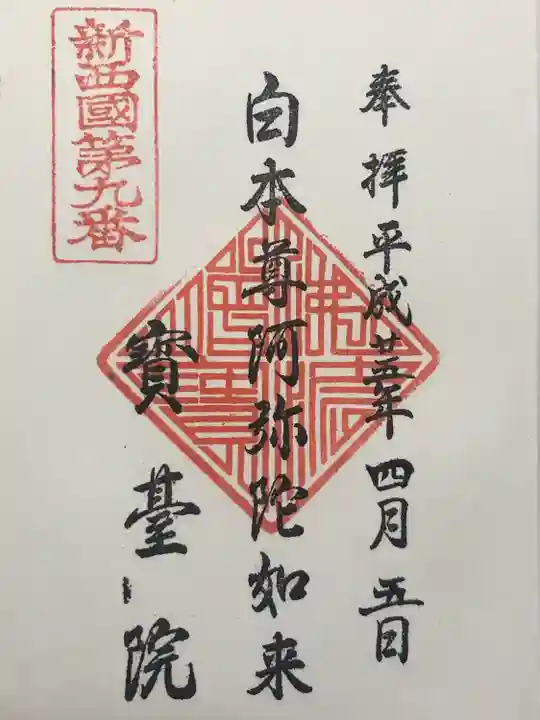 奉拝平成廿五年四月五日
白本尊阿弥陀如来
寳臺院
新西國第九番
佛法僧寳